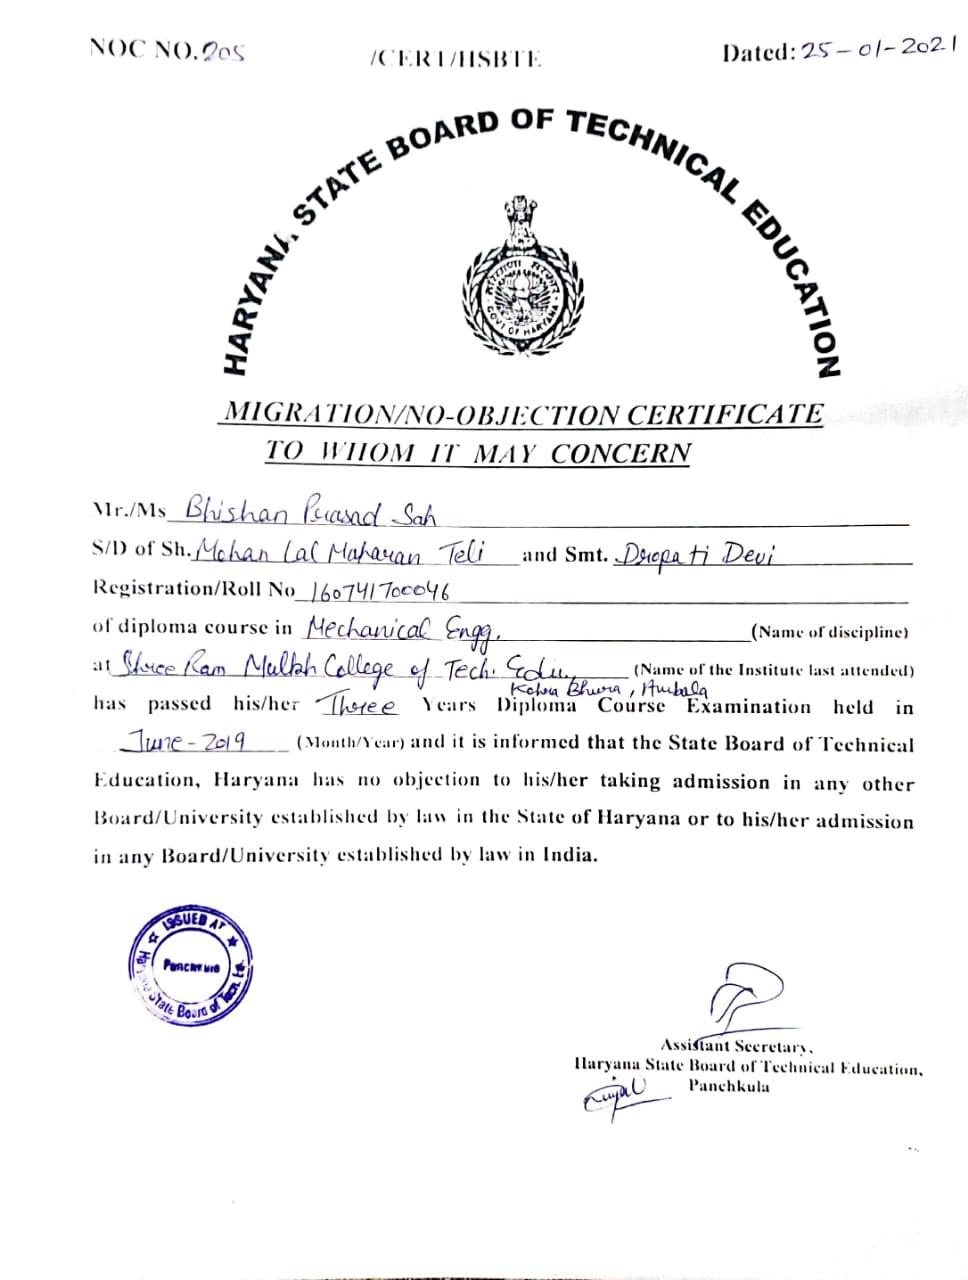 NOC NO. 205 /CERT/HSBTE Dated: 25-01-2021
HARYANA STATE BOARD OF TECHNICAL EDUCATION
GOVT OF HARYANA
MIGRATION/NO-OBJECTION CERTIFICATE
TO WHOM IT MAY CONCERN
Mr./Ms Bhishan Prasad Sah
S/D of Sh. Mohan Lal Maharan Teli and Smt. Dropati Devi
Registration/Roll No 160741700046
of diploma course in Mechanical Engg. (Name of discipline)
at Shree Ram Mulkh College of Tech. Edu., (Name of the Institute last attended)
Bhura, Ambala
has passed his/her Three Years Diploma Course Examination held in
June-2019 (Month/Year) and it is informed that the State Board of Technical
Education, Haryana has no objection to his/her taking admission in any other
Board/University established by law in the State of Haryana or to his/her admission
in any Board/University established by law in India.
ISSUED AT
PANCHKULA
Haryana State Board of Tech. Ed.
Assistant Secretary,
Haryana State Board of Technical Education,
Panchkula